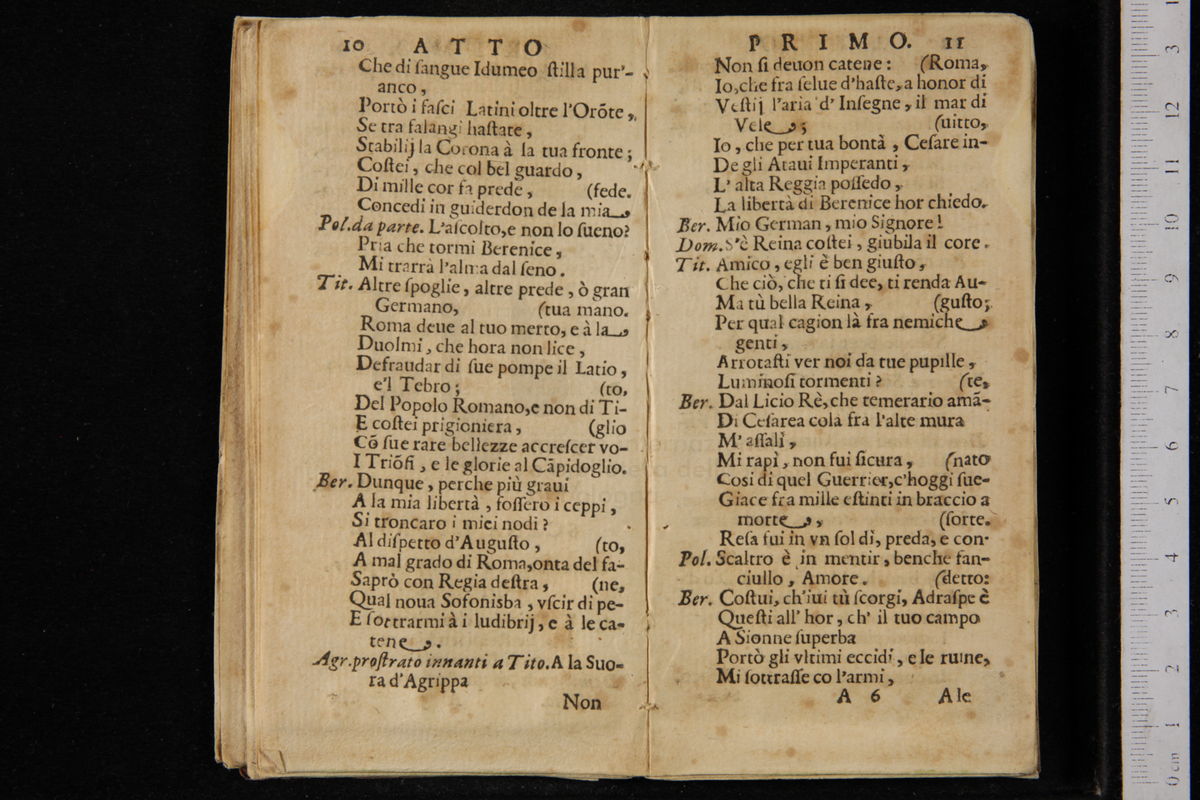 10 ATTO
Che di ſangue Idumeo ſtilla pur'-
anco,
Portò i faſci Latini oltre l'Orõte,
Se tra falangi haſtate,
Stabilij la Corona à la tua fronte;
Coſtei, che col bel guardo,
Di mille cor fa prede, (fede.
Concedi in guiderdon de la mia
Pol.da parte. L'aſcolto,e non lo ſueno?
Pria che tormi Berenice,
Mi trarrà l'alma dal ſeno.
Tit. Altre ſpoglie, altre prede, ò gran
Germano, (tua mano.
Roma deue al tuo merto, e à la
Duolmi, che hora non lice,
Defraudar di ſue pompe il Latio,
e'l Tebro; (to,
Del Popolo Romano,e non di Ti-
E coſtei prigioniera, (glio
Cõ ſue rare bellezze accreſcer vo-
I Triõfi, e le glorie al Cãpidoglio.
Ber. Dunque, perche più graui
A la mia libertà, foſſero i ceppi,
Si troncaro i miei nodi?
Al diſpetto d'Auguſto, (to,
A mal grado di Roma,onta del fa-
Saprò con Regia deſtra, (ne,
Qual noua Sofonisba, vſcir di pe-
E ſottrarmi à i ludibrij, e à le ca-
tene.
Agr.proſtrato innanti a Tito. A la Suo-
ra d'Agrippa
Non
PRIMO. 11
Non ſi deuon catene: (Roma,
Io,che fra ſelue d'haſte, a honor di
Veſtij l'aria d'Inſegne, il mar di
Vele; (uitto,
Io, che per tua bontà, Ceſare in-
De gli Ataui Imperanti,
L'alta Reggia poſſedo,
La libertà di Berenice hor chiedo.
Ber. Mio German, mio Signore!
Dom. S'è Reina coſtei, giubila il core.
Tit. Amico, egli è ben giuſto,
Che ciò, che ti ſi dee, ti renda Au-
Ma tù bella Reina, (guſto;
Per qual cagion là fra nemiche
genti,
Arrotaſti ver noi da tue pupille,
Luminoſi tormenti? (te,
Ber. Dal Licio Rè,che temerario amã-
Di Ceſarea colà fra l'alte mura
M'aſſalì,
Mi rapì, non fui ſicura, (nato
Cosi di quel Guerrier,c'hoggi ſue-
Giace fra mille eſtinti in braccio a
morte, (ſorte.
Reſa fui in vn ſol dì, preda, e con-
Pol. Scaltro è in mentir, benche fan-
ciullo, Amore. (detto:
Ber. Coſtui, ch'iui tù ſcorgi, Adraſpe è
Queſti all'hor, ch'il tuo campo
A Sionne ſuperba
Portò gli vltimi eccidi, e le ruine,
Mi ſottraſſe co l'armi,
A 6 A le
3
12
11
10
9
8
7
6
5
4
3
2
1
0 cm